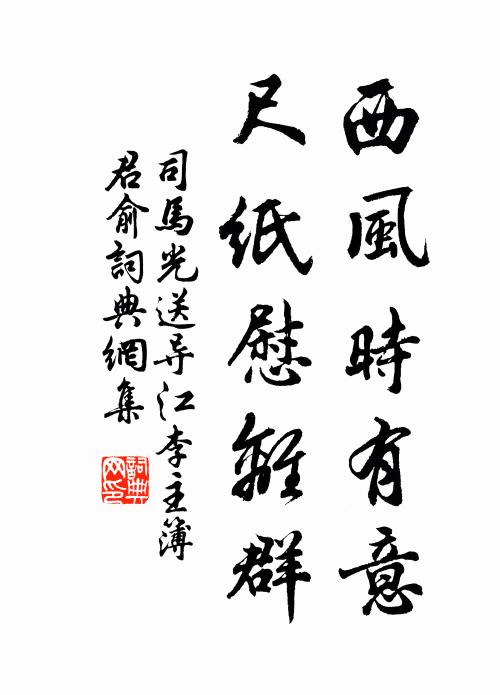 西風時有意
尺紙慰離群
司馬光送导江李主簿
君俞詞典網集
詞典
网印